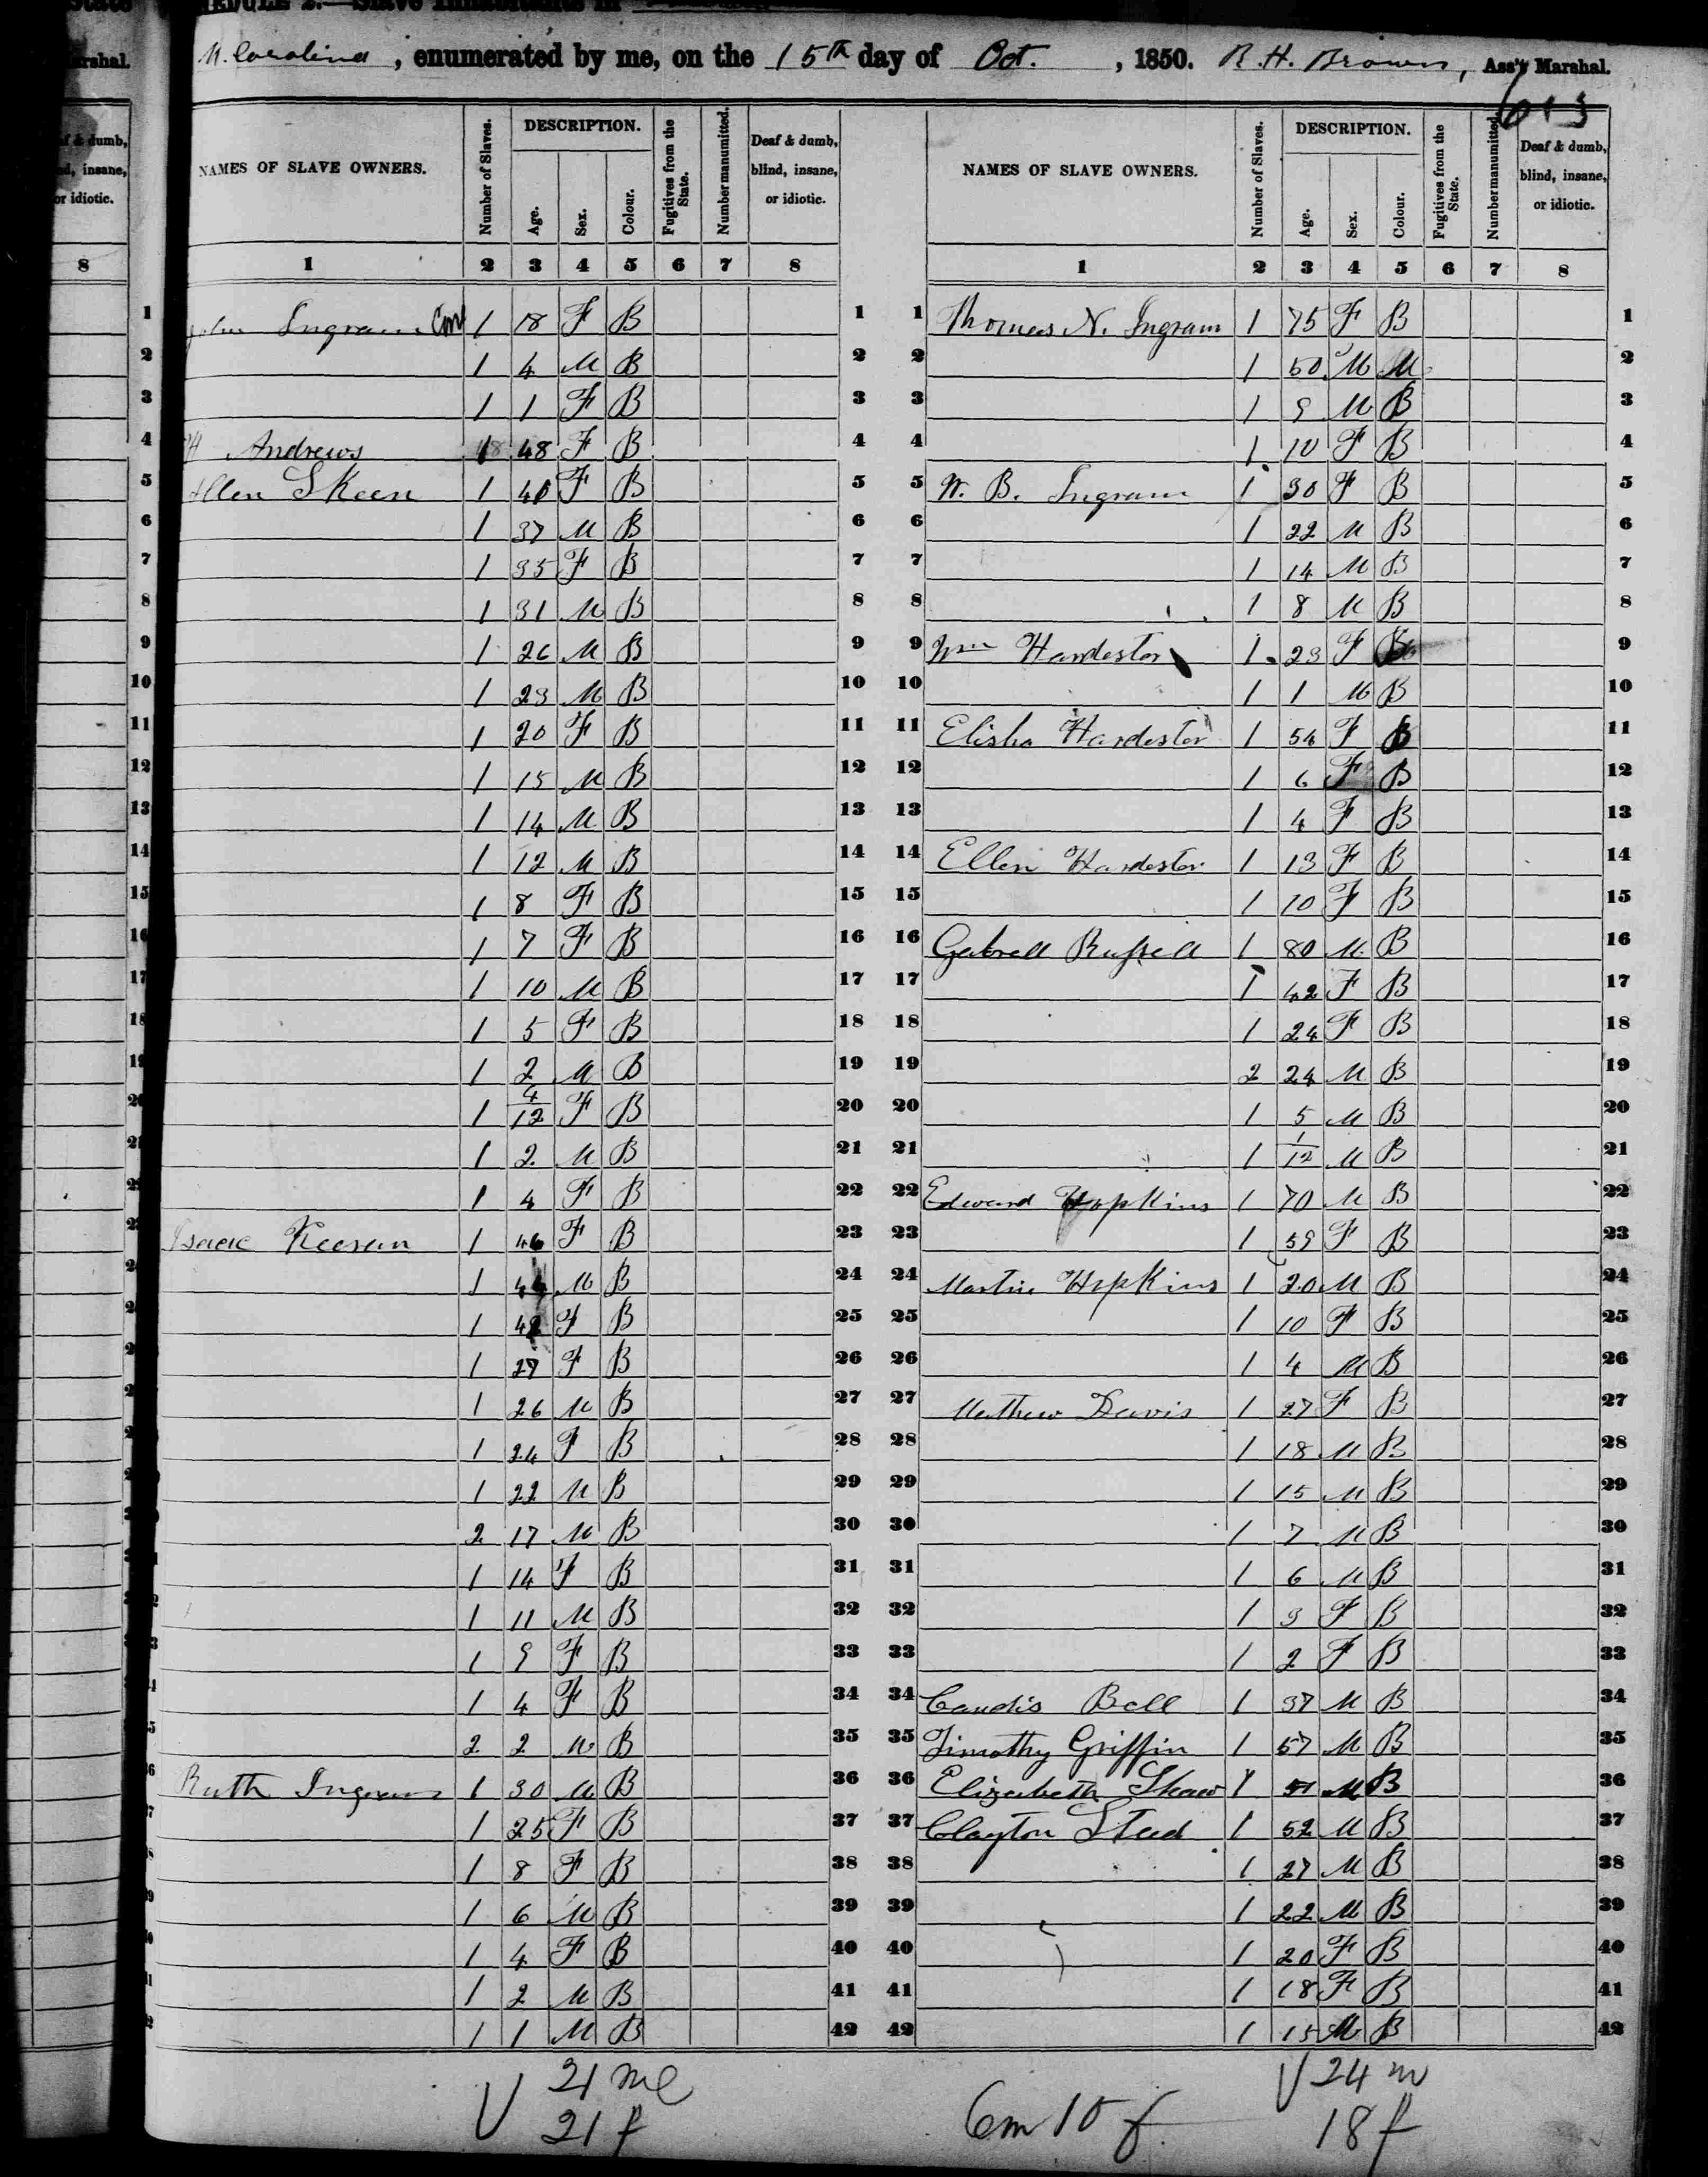 SCHEDULE 2.—Slave Inhabitants in
N. Carolina, enumerated by me, on the 15th day of Oct., 1850. R. H. Brown, Ass't Marshal.
613
NAMES OF SLAVE OWNERS. Number of Slaves. DESCRIPTION. Age. Sex. Colour. Fugitives from the State. Number manumitted. Deaf & dumb, blind, insane, or idiotic.
1 2 3 4 5 6 7 8
1 John Ingram 1 18 F B 1
2 1 4 M B 2
3 1 1 F B 3
4 Andrews 1 48 F B 4
5 Allen Skeen 1 40 F B 5
6 1 37 M B 6
7 1 35 F B 7
8 1 31 M B 8
9 1 26 M B 9
10 1 23 M B 10
11 1 20 F B 11
12 1 15 M B 12
13 1 14 M B 13
14 1 12 M B 14
15 1 8 F B 15
16 1 7 F B 16
17 1 10 M B 17
18 1 5 F B 18
19 1 2 M B 19
20 1 4/12 F B 20
21 1 2 M B 21
22 1 4 F B 22
23 Isaac Keeran 1 46 F B 23
24 1 44 M B 24
25 1 42 F B 25
26 1 27 F B 26
27 1 26 M B 27
28 1 24 F B 28
29 1 22 M B 29
30 2 17 M B 30
31 1 14 F B 31
32 1 11 M B 32
33 1 9 F B 33
34 1 4 F B 34
35 2 2 M B 35
36 Ruth Ingram 1 30 M B 36
37 1 25 F B 37
38 1 8 F B 38
39 1 6 M B 39
40 1 4 F B 40
41 1 2 M B 41
42 1 1 M B 42
21 m
21 f
NAMES OF SLAVE OWNERS. Number of Slaves. DESCRIPTION. Age. Sex. Colour. Fugitives from the State. Number manumitted. Deaf & dumb, blind, insane, or idiotic.
1 2 3 4 5 6 7 8
1 Thomas N. Ingram 1 75 F B 1
2 1 50 M M 2
3 1 9 M B 3
4 1 10 F B 4
5 W. B. Ingram 1 30 F B 5
6 1 22 M B 6
7 1 14 M B 7
8 1 8 M B 8
9 Wm Hardester 1 23 F B 9
10 1 1 M B 10
11 Elisha Hardester 1 54 F B 11
12 1 6 F B 12
13 1 4 F B 13
14 Ellen Hardester 1 13 F B 14
15 1 10 F B 15
16 Gabrell Russell 1 80 M B 16
17 1 42 F B 17
18 1 24 F B 18
19 2 24 M B 19
20 1 5 M B 20
21 1 1/12 M B 21
22 Edward Hopkins 1 70 M B 22
23 1 59 F B 23
24 Martin Hopkins 1 20 M B 24
25 1 10 F B 25
26 1 4 M B 26
27 Mathew Davis 1 27 F B 27
28 1 18 M B 28
29 1 15 M B 29
30 1 7 M B 30
31 1 6 M B 31
32 1 3 F B 32
33 1 2 F B 33
34 Candis Bell 1 37 M B 34
35 Timothy Griffin 1 57 M B 35
36 Elizabeth Shaw 1 51 M B 36
37 Clayton Steed 1 52 M B 37
38 1 27 M B 38
39 1 22 M B 39
40 1 20 F B 40
41 1 18 F B 41
42 1 15 M B 42
6m 10 f
24 m
18 f